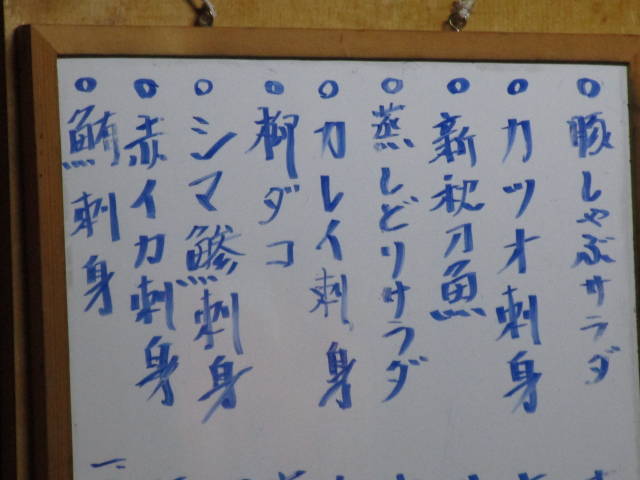 ○豚しゃぶサラダ
○カツオ刺身
○新秋刀魚
○蒸しどりサラダ
○カレイ刺身
○柳ダコ
○シマ鯵刺身
○赤イカ刺身
○鮪刺身